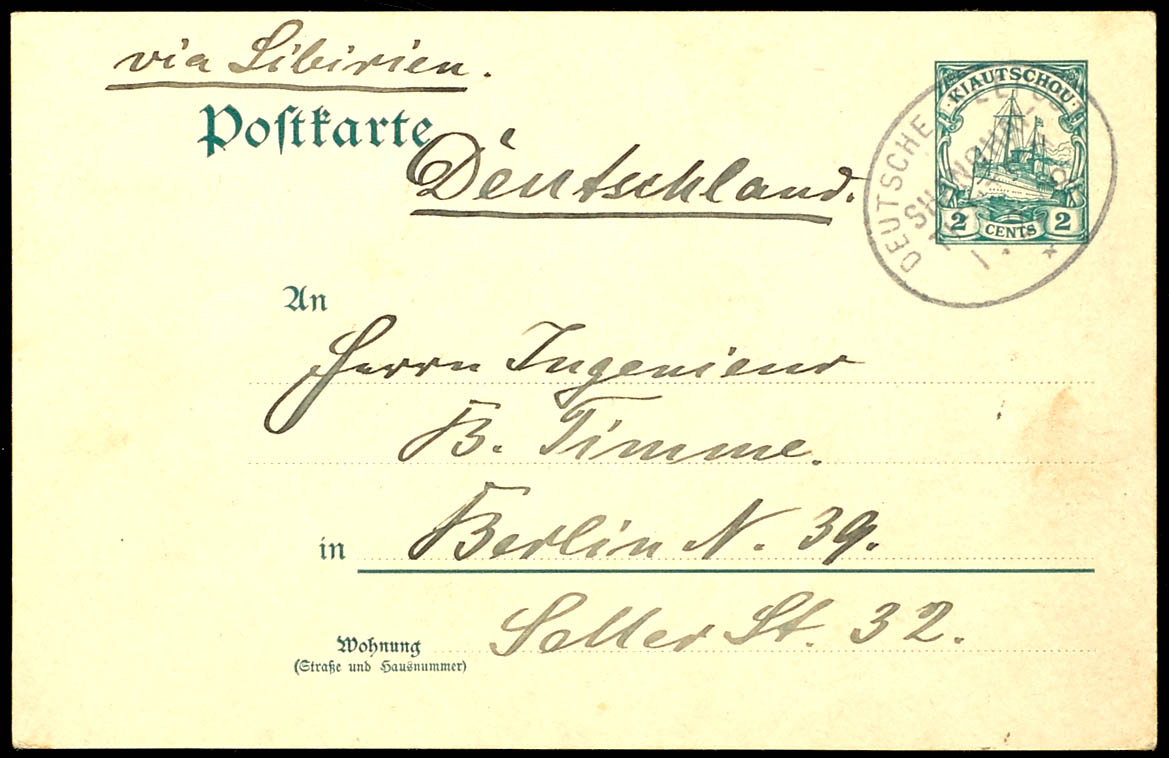 via Sibirien.
Postkarte
Deutschland.
KIAUTSCHOU
2 CENTS 2
DEUTSCHE
SHANGHAI
An
Herrn Ingenieur
B. Timme.
in Berlin N. 39.
Seller St. 32.
Wohnung
(Straße und Hausnummer)